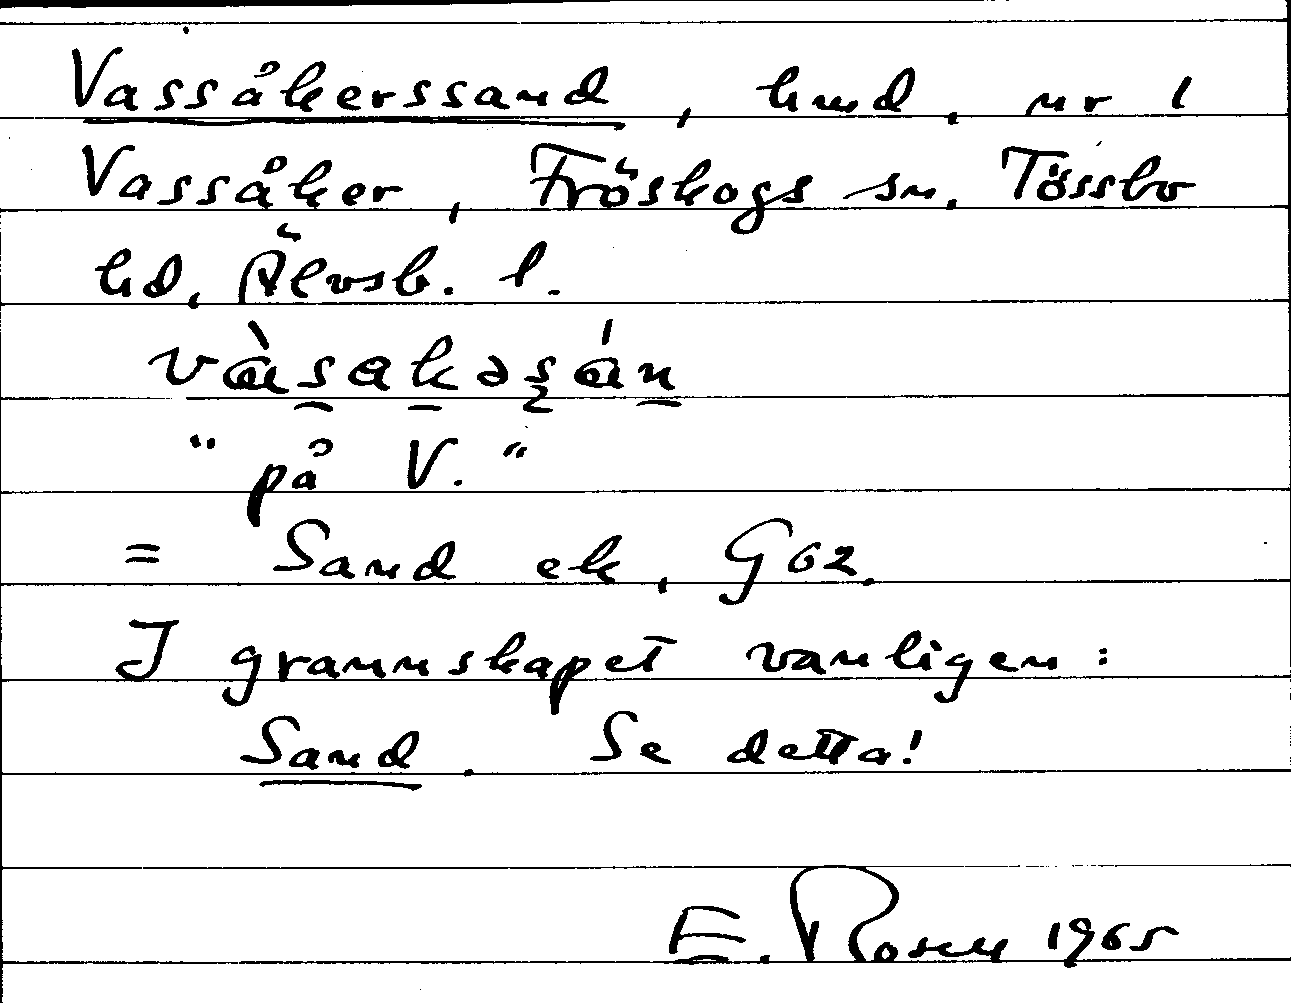 Vassåkerssand, hmd. nr 1
Vassåker, Fröskogs sn, Tössbo
hd, Älvsb. l.
vàsakəsán
"på V."
= Sand ek, G 62.
I grannskapet vanligen:
Sand. Se detta!
E. Rosen 1965